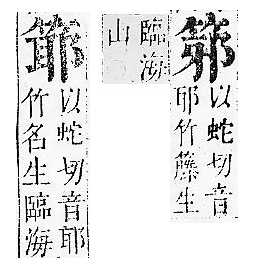 以蛇切音
耶竹籐生
臨海
山
以蛇切音耶
竹名生臨海